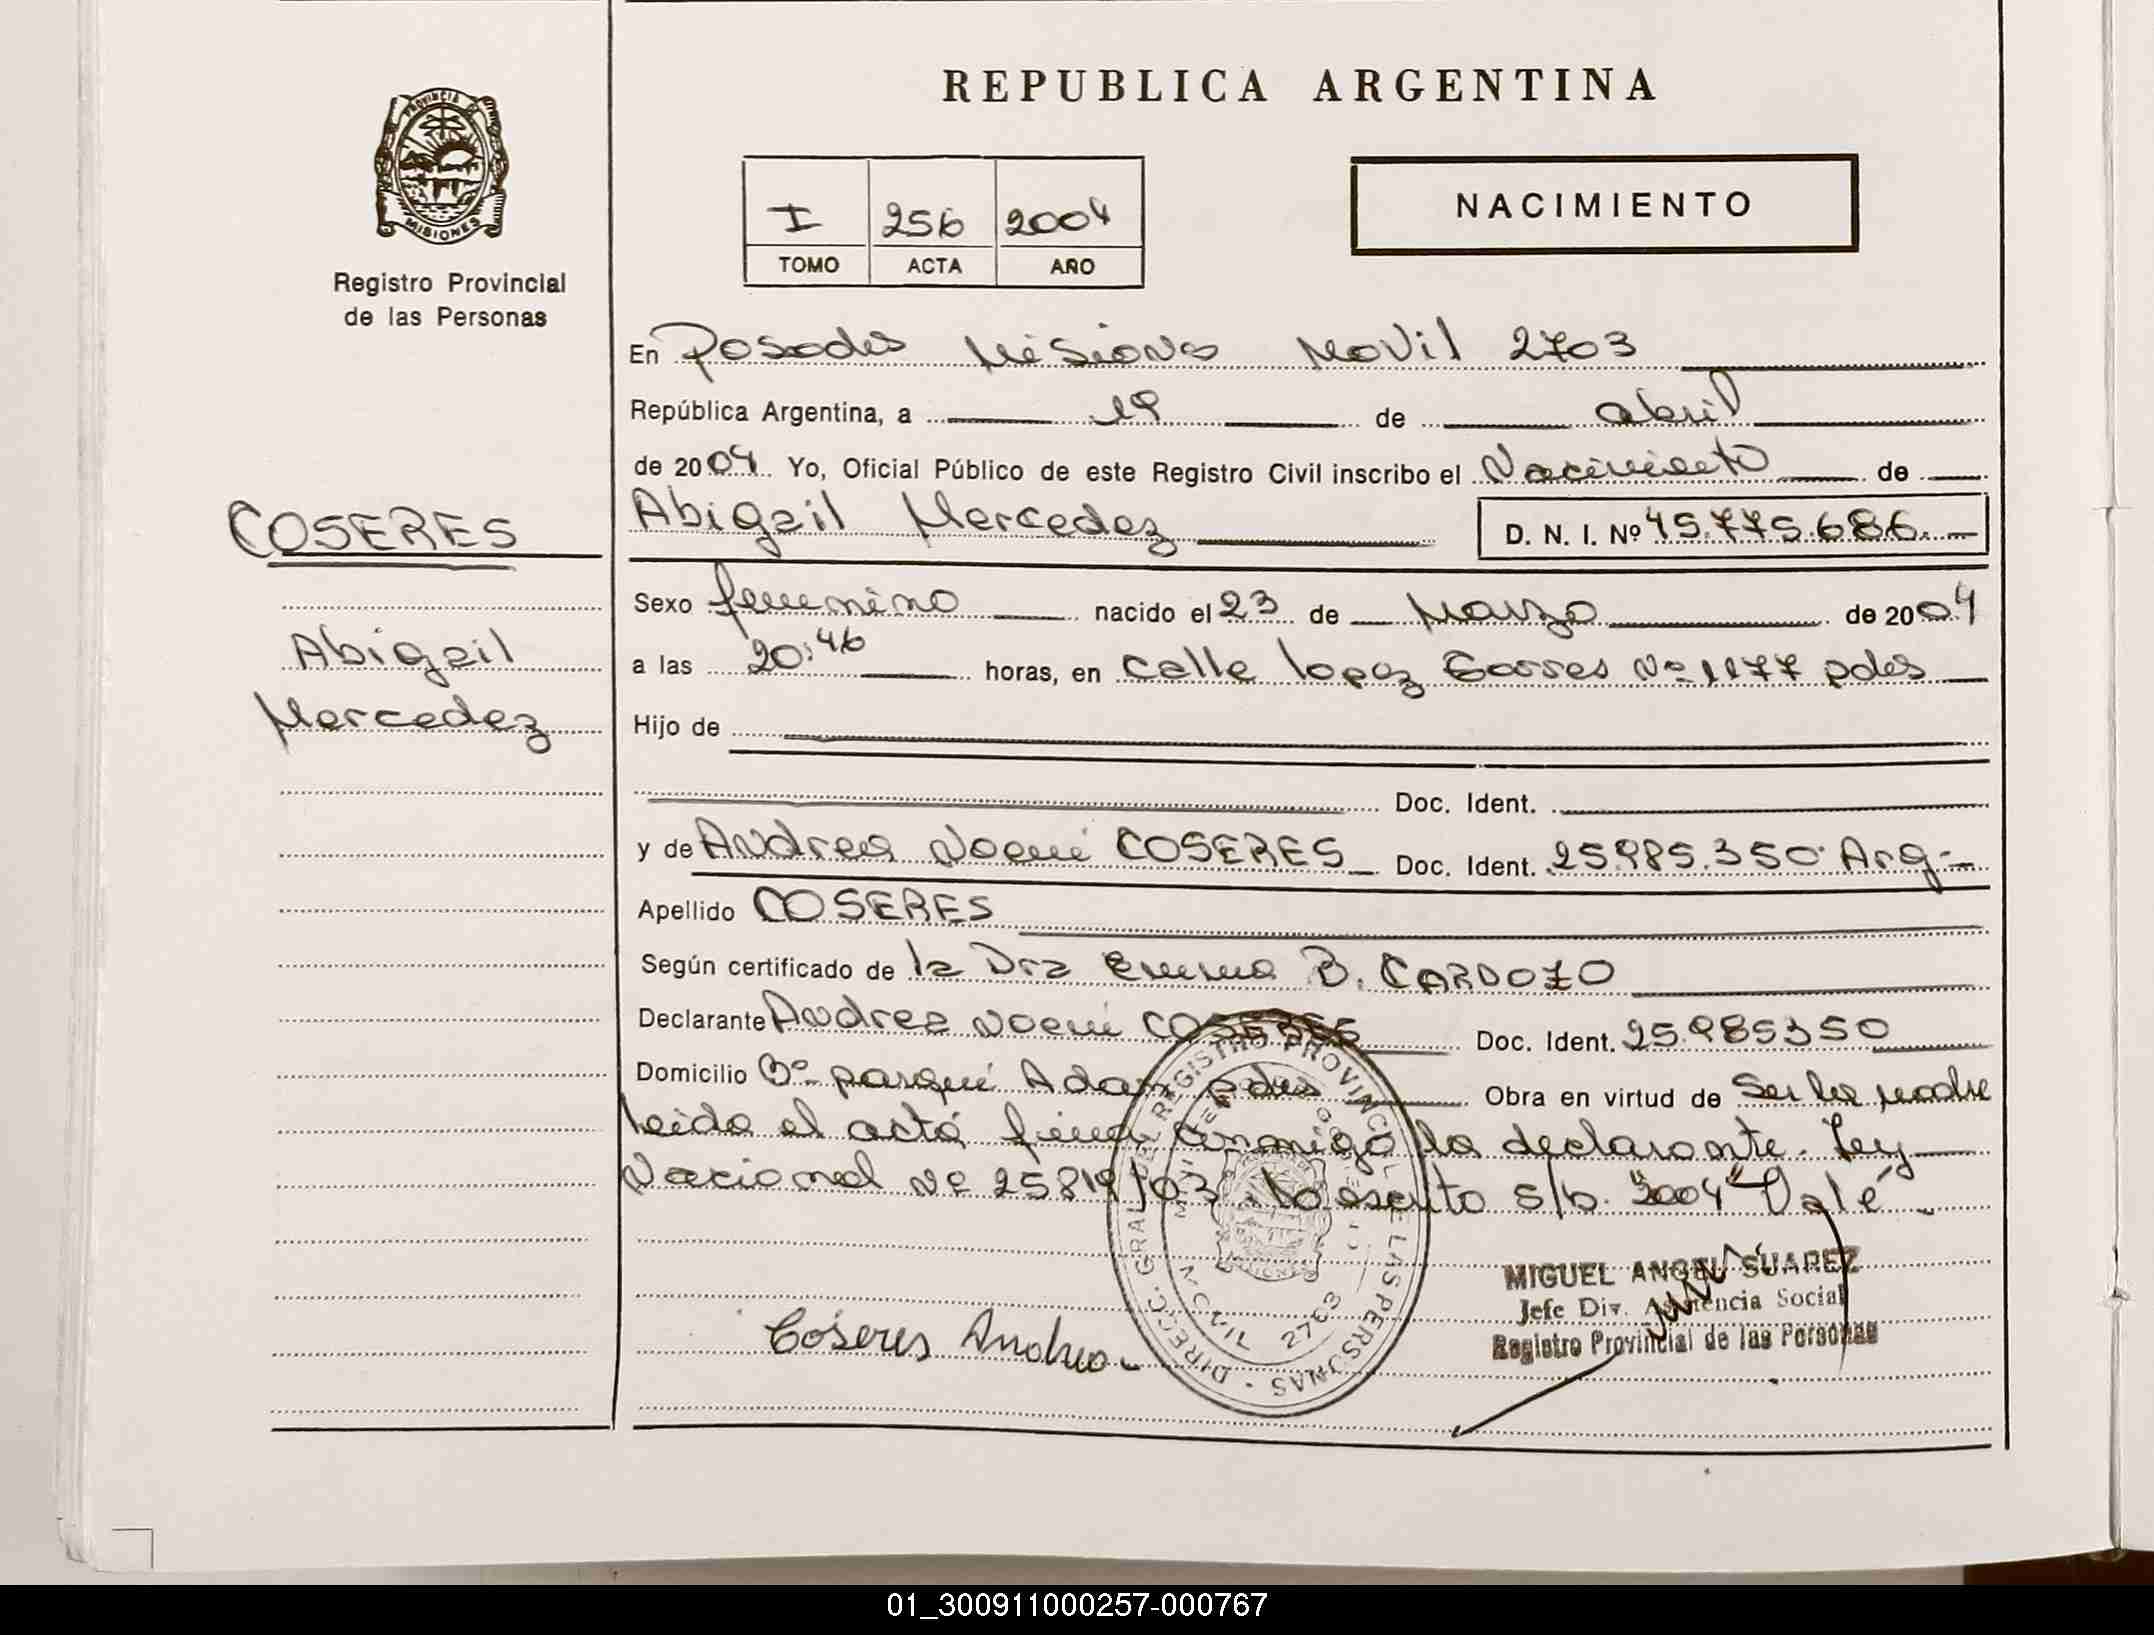 REPUBLICA ARGENTINA
PROVINCIA DE
MISIONES
Registro Provincial
de las Personas
I 256 2004
TOMO ACTA AÑO
NACIMIENTO
En Posadas Misiones Movil 2703
República Argentina, a 19 de abril
de 2004 Yo, Oficial Público de este Registro Civil inscribo el Nacimiento de
COSERES
Abigail Mercedez D. N. I. Nº 45.775.686.
Sexo femenino nacido el 23 de Marzo de 2004
Abigail
a las 20:46 horas, en calle lopez torres Nº 1177 pdas
Mercedez
Hijo de
Doc. Ident.
y de Andrea Noemi COSERES Doc. Ident. 25.985.350 Arg.
Apellido COSERES
Según certificado de la Dra Emma B. CARDOZO
Declarante Andrea Noemi COSERES Doc. Ident. 25.985350
Domicilio Bº parque Adam pdas Obra en virtud de Ser la madre
leida el acta firma conmigo la declarante. Ley
Nacional Nº 25819/03 Lo escrito s/b. "2004" Vale
DIRECC. GRAL. DEL REGISTRO PROVINCIAL DE LAS PERSONAS
MOVIL 2703
Coseres Andrea
MIGUEL ANGEL SUAREZ
Jefe Div. Asistencia Social
Registro Provincial de las Personas
01_300911000257-000767